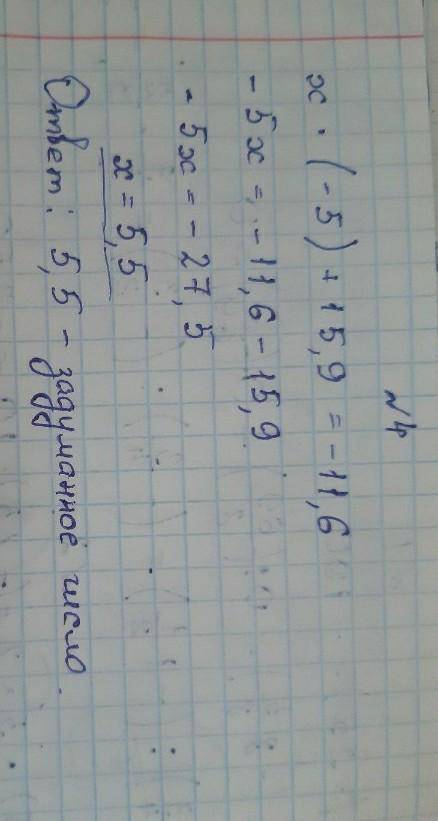 №4
x · (-5) + 15,9 = -11,6
-5x = -11,6 - 15,9
-5x = -27,5
x = 5,5
Ответ: 5,5 - задуманное число.